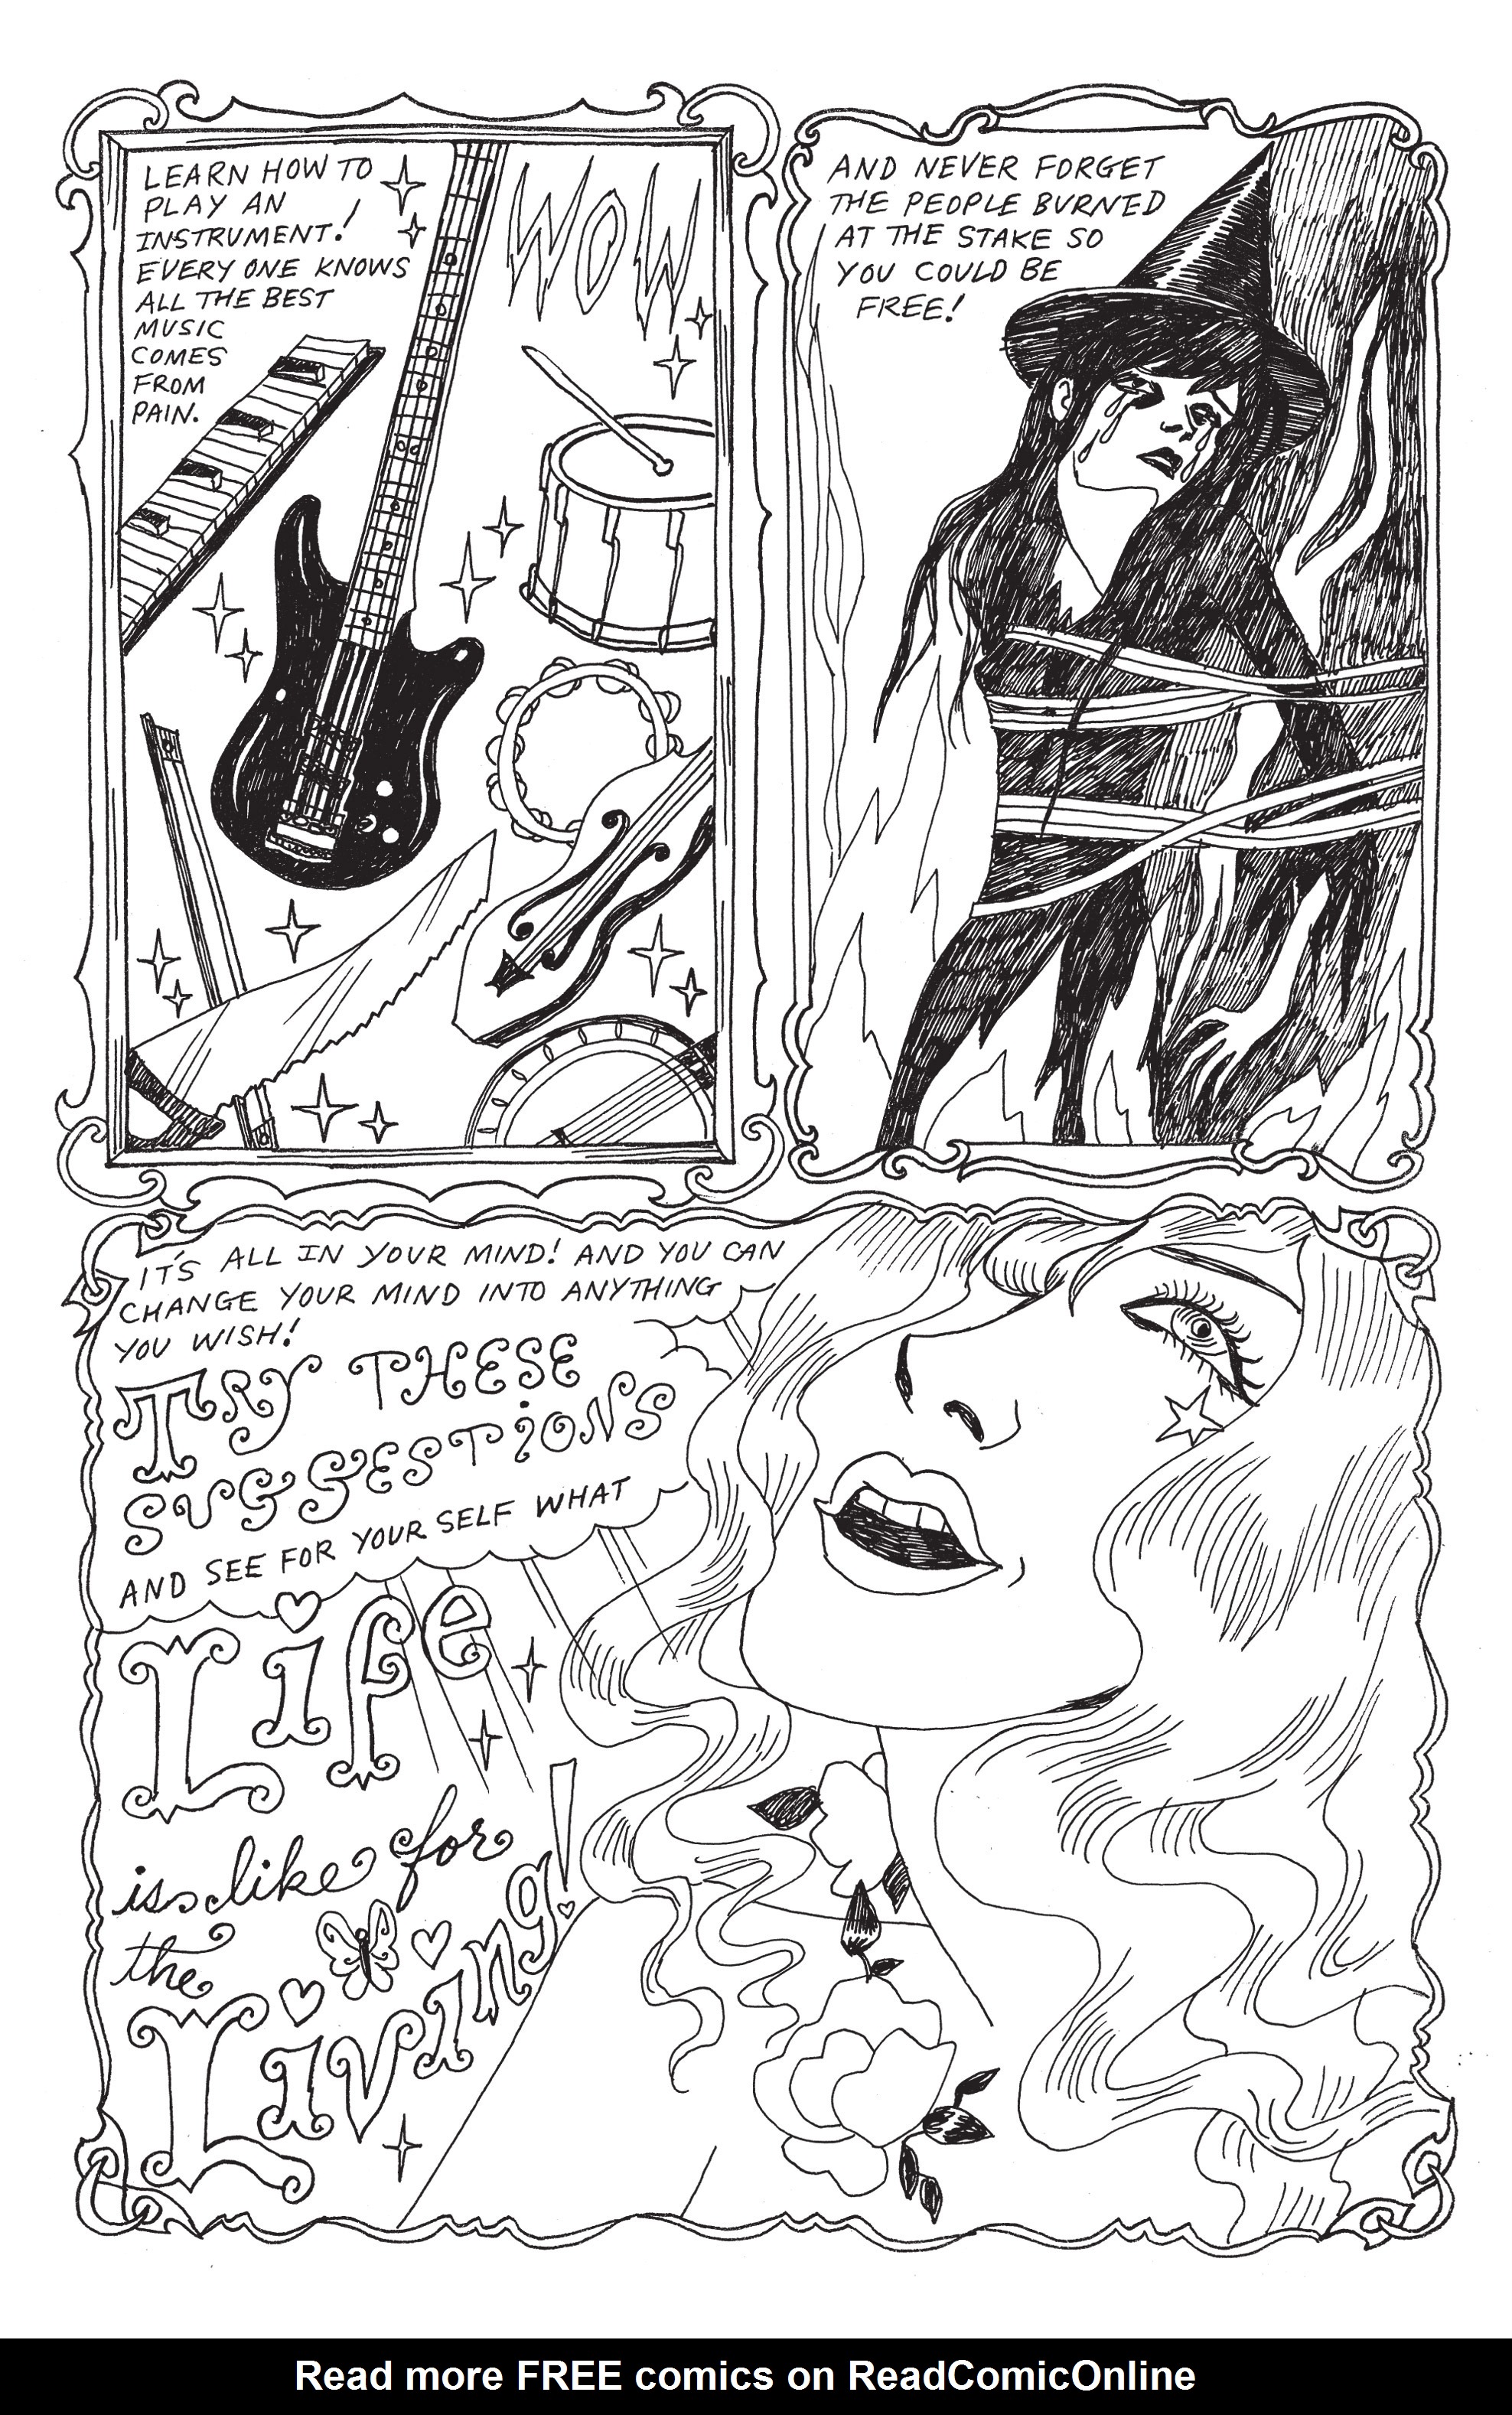 LEARN HOW TO
PLAY AN
INSTRUMENT!
EVERY ONE KNOWS
ALL THE BEST
MUSIC
COMES
FROM
PAIN.
WOW
AND NEVER FORGET
THE PEOPLE BURNED
AT THE STAKE SO
YOU COULD BE
FREE!
IT'S ALL IN YOUR MIND! AND YOU CAN
CHANGE YOUR MIND INTO ANYTHING
YOU WISH!
TRY THESE
SUGGESTIONS
AND SEE FOR YOUR SELF WHAT
Life
is like for
the
Living!
Read more FREE comics on ReadComicOnline